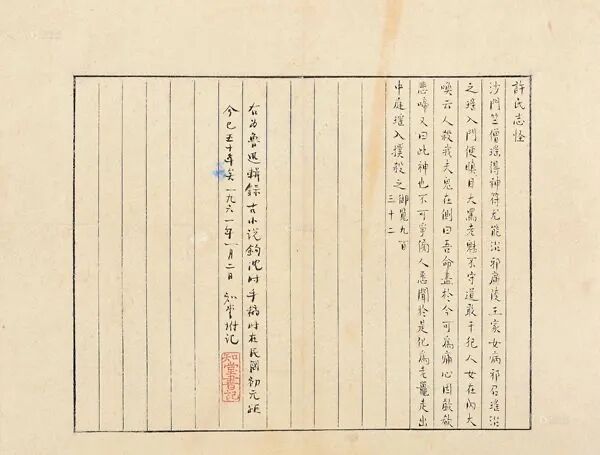 許氏志怪
沙門竺僧瑤得神符尤能治邪廣陵王家女病邪召瑤治
之瑤入門便瞋目大罵老魅不守道敢干犯人女在內大
喚云人殺我夫鬼在側曰吾命盡於今可為痛心因歔欷
悲啼又曰此神也不可爭傍人悉聞於是化為老鼉走出
中庭瑤入撲殺之 御覽九百
三十二
右為魯迅輯錄古小说鈎沈时手稿时在民國初元距
今已五十年矣一九六一年一月二日 知堂附记
知堂書記